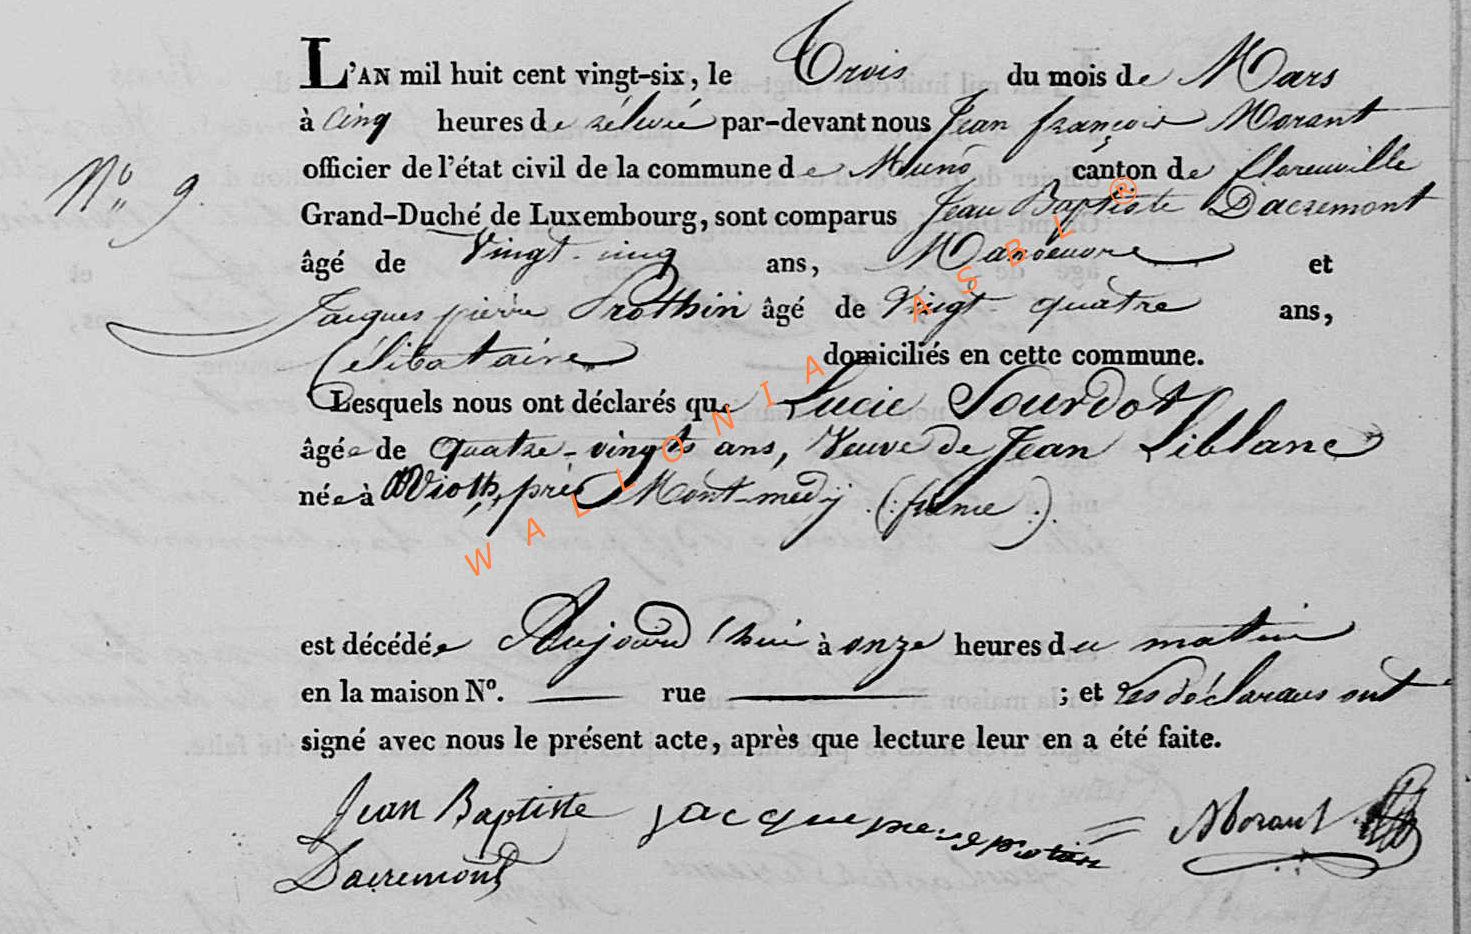 L'AN mil huit cent vingt-six, le Trois du mois de Mars
à Cinq heures de rélevée par-devant nous Jean françois Morant
officier de l'état civil de la commune de Muno canton de florenville
Nº 9.
Grand-Duché de Luxembourg, sont comparus Jean Baptiste Dacremont
âgé de Vingt-cinq ans, Manoeuvre et
Jacques pierre Prothin âgé de Vingt-quatre ans,
Célibataire domiciliés en cette commune.
Lesquels nous ont déclarés que Lucie Sourdot
âgée de quatre-vingts ans, Veuve de Jean Liblanc
née à avioth, près Montmedÿ (:france:)
est décédée Aujourd'hui à onze heures du matin
en la maison Nº. rue ; et Les déclarans ont
signé avec nous le présent acte, après que lecture leur en a été faite.
Jean Baptiste jacque pierre protin Morant
Dacremont
WALLONIA ASBL ®